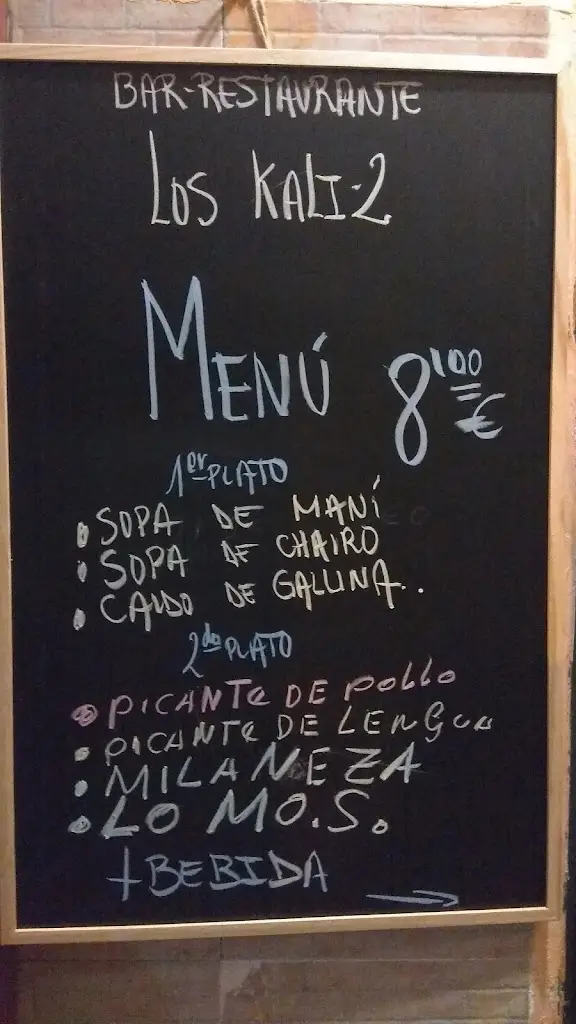 BAR-RESTAURANTE
LOS KALI-2
MENÚ 8'00 €
1er PLATO
• SOPA DE MANÍ
• SOPA DE CHAIRO
• CALDO DE GALLINA..
2do PLATO
• PICANTE DE POLLO
• PICANTE DE LENGUA
• MILANEZA
• LOMO.S.
+BEBIDA →